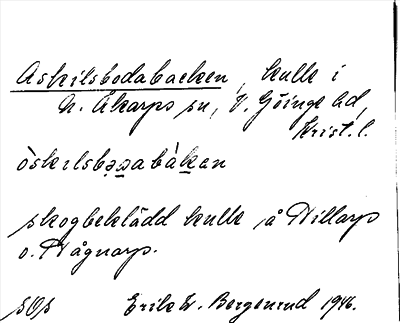 Askilsbodabacken, kulle i
N. Åkarps sn, V. Göinge hd,
Krist. l.
òskılsbǫsabàkan
skogbeklädd kulle å Hillarp
o. Hågnarp.
sOs Erik W. Bergenrud 1946.